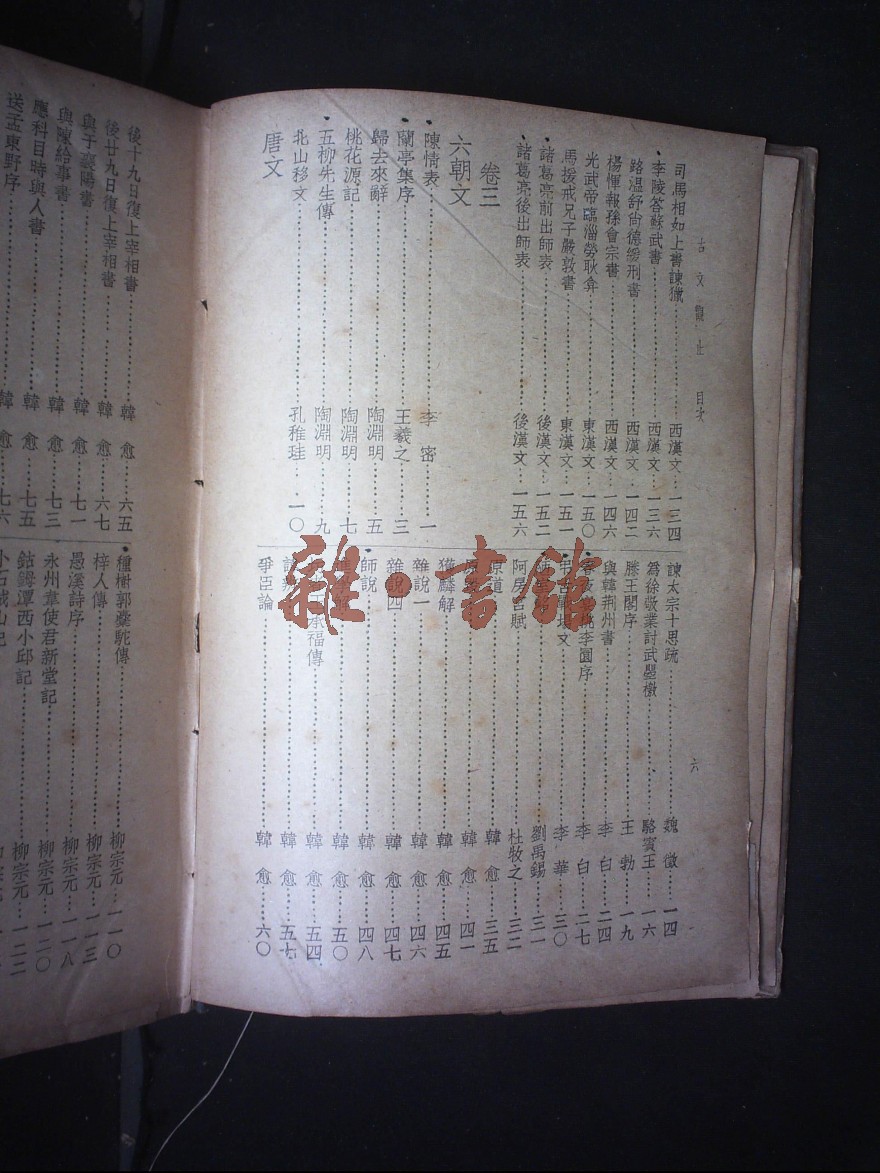 古文觀止 目次
六
司馬相如上書諫獵 西漢文 一三四
李陵答蘇武書 西漢文 一三六
路溫舒尙德緩刑書 西漢文 一四二
楊惲報孫會宗書 西漢文 一四六
光武帝臨淄勞耿弇 東漢文 一五〇
馬援戒兄子嚴敦書 東漢文 一五一
諸葛亮前出師表 後漢文 一五二
諸葛亮後出師表 後漢文 一五六
卷三
六朝文
陳情表 李密 一
蘭亭集序 王羲之 三
歸去來辭 陶淵明 五
桃花源記 陶淵明 七
五柳先生傳 陶淵明 九
北山移文 孔稚珪 一〇
唐文
諫太宗十思疏 魏徵 一四
爲徐敬業討武曌檄 駱賓王 一六
滕王閣序 王勃 一九
與韓荆州書 李白 二四
桃李園序 李白 二七
文 李華 三〇
劉禹錫 三一
阿房宮賦 杜牧之 三二
原道 韓愈 三五
韓愈 四一
獲麟解 韓愈 四五
雜說一 韓愈 四六
雜說四 韓愈 四七
師說 韓愈 四八
韓愈 五〇
承福傳 韓愈 五四
韓愈 五七
爭臣論 韓愈 六〇
後十九日復上宰相書 韓愈 六五
後廿九日復上宰相書 韓愈 六七
與于襄陽書 韓愈 七一
與陳給事書 韓愈 七三
應科目時與人書 韓愈 七五
送孟東野序 韓愈 七六
種樹郭橐駝傳 柳宗元 一一〇
梓人傳 柳宗元 一一三
愚溪詩序 柳宗元 一一八
永州韋使君新堂記 柳宗元 一二〇
鈷鉧潭西小邱記 柳宗元 一二二
小石城山記
雜·書館